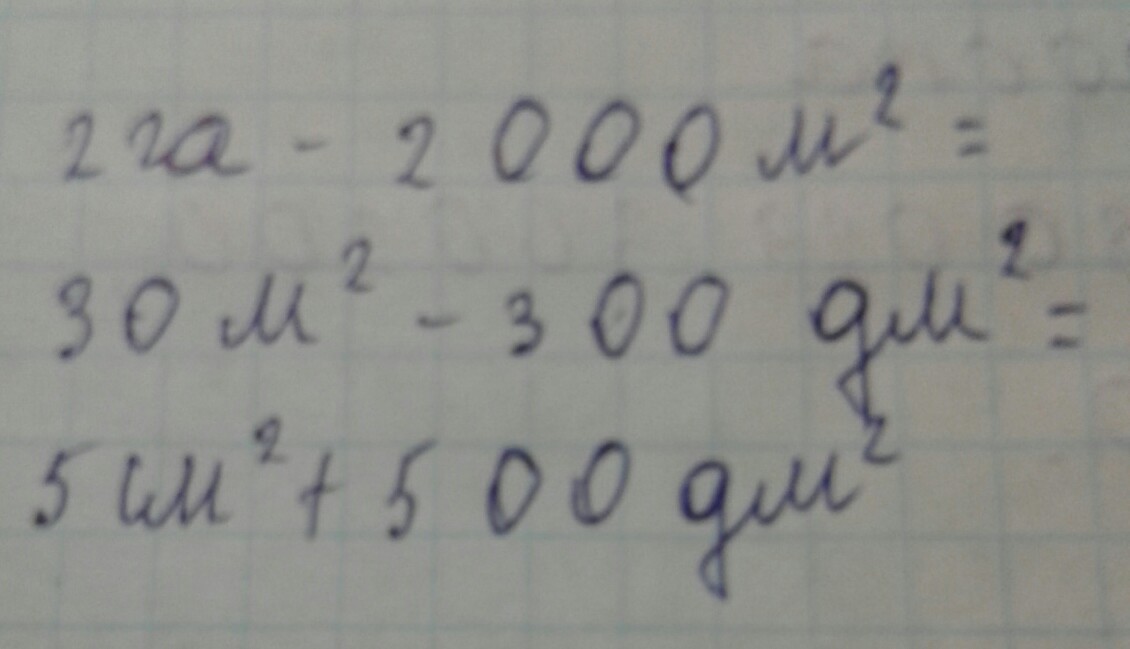 2 га - 2 000 м² =
30 м² - 300 дм² =
5 см² + 500 дм²